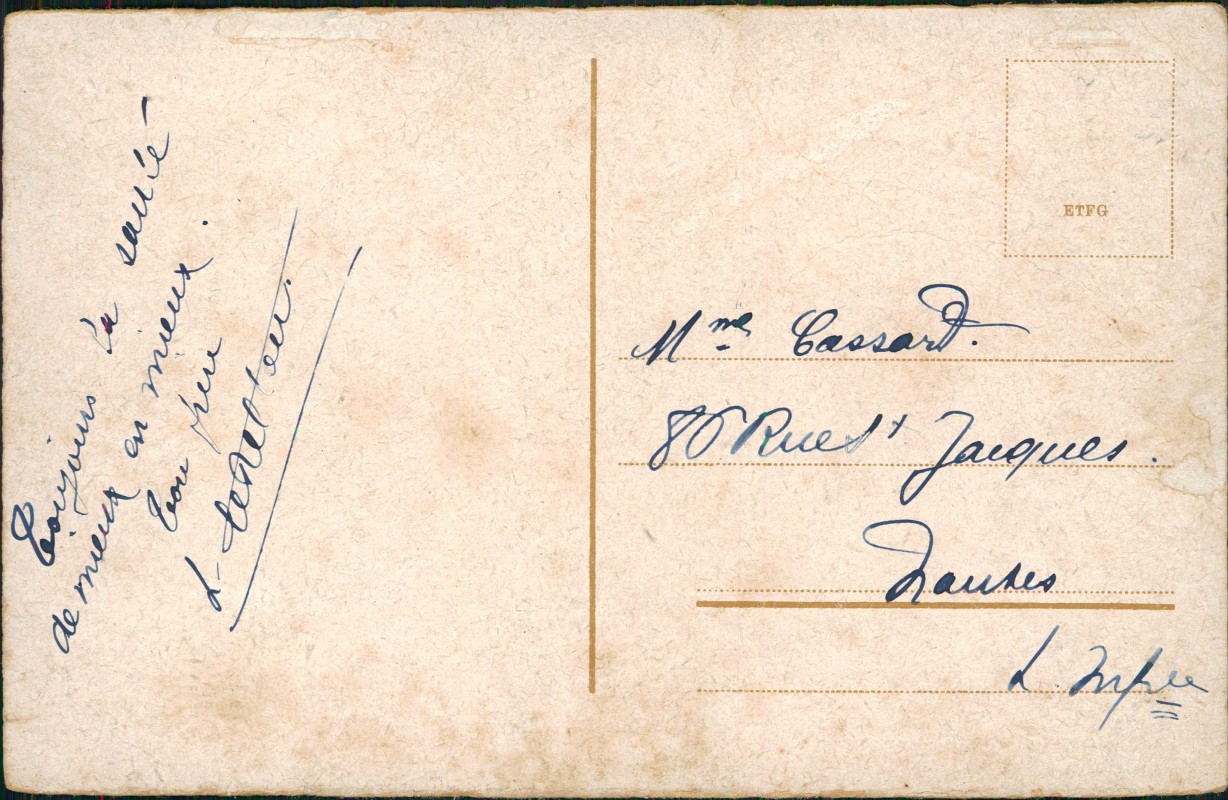 Toujours la santé –
de mieux en mieux.
Ton père
ETFG
Mme Cassard.
80 Rue St Jacques.
Nantes
L. Infre